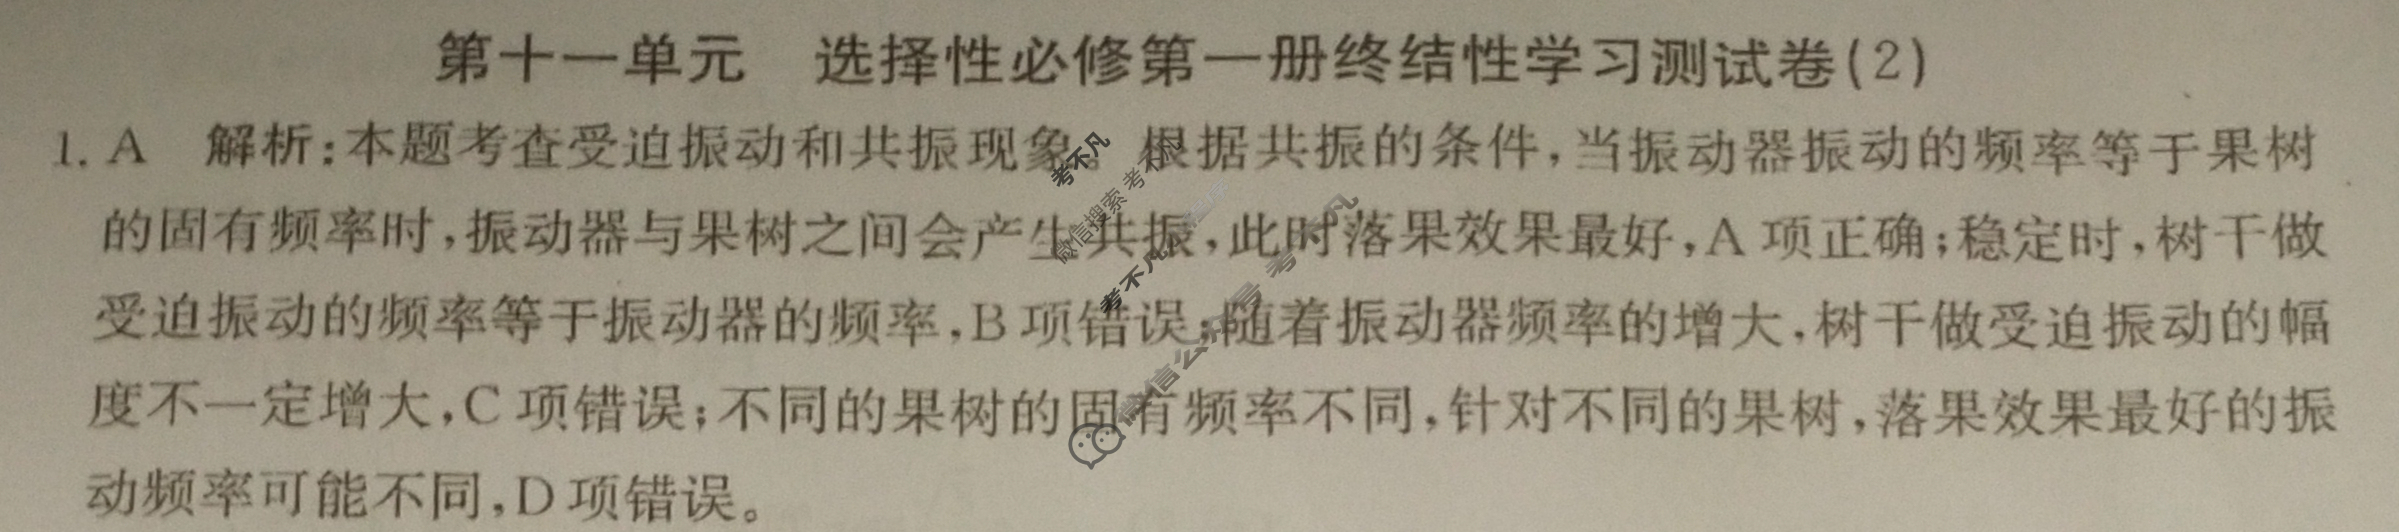 第十一单元 选择性必修第一册终结性学习测试卷(2)
1. A 解析:本题考查受迫振动和共振现象。根据共振的条件,当振动器振动的频率等于果树
的固有频率时,振动器与果树之间会产生共振,此时落果效果最好,A 项正确;稳定时,树干做
受迫振动的频率等于振动器的频率,B 项错误;随着振动器频率的增大,树干做受迫振动的幅
度不一定增大,C 项错误;不同的果树的固有频率不同,针对不同的果树,落果效果最好的振
动频率可能不同,D 项错误。
考不凡
微信搜索 考不凡
考不凡
微信公众号 考不凡